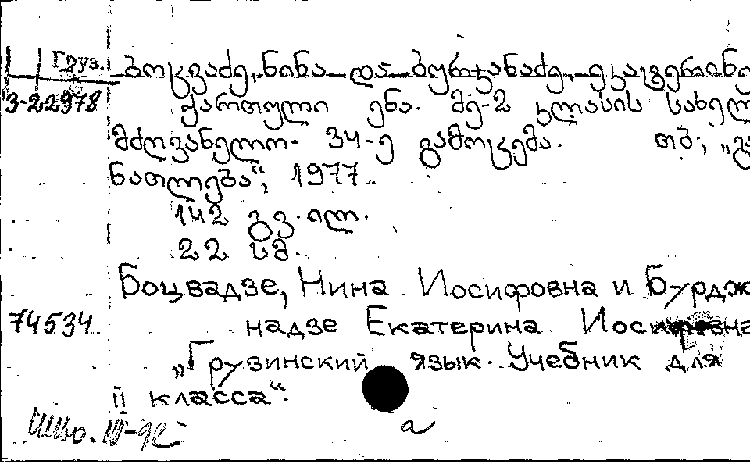 Груз. ბოცვაძე, ნინა და ბურჯანაძე, ეკატერინე
3-22978 ქართული ენა. მე-2 კლასის სახელ
მძღვანელო. 34-ე გამოცემა. თბ., „გა
ნათლება“, 1977.
142 გვ. ილ.
22 სმ.
Боцвадзе, Нина Иосифовна и Бурдж
74534 надзе Екатерина Иосифовна
„Грузинский язык. Учебник для
II класса“.
III-92
а